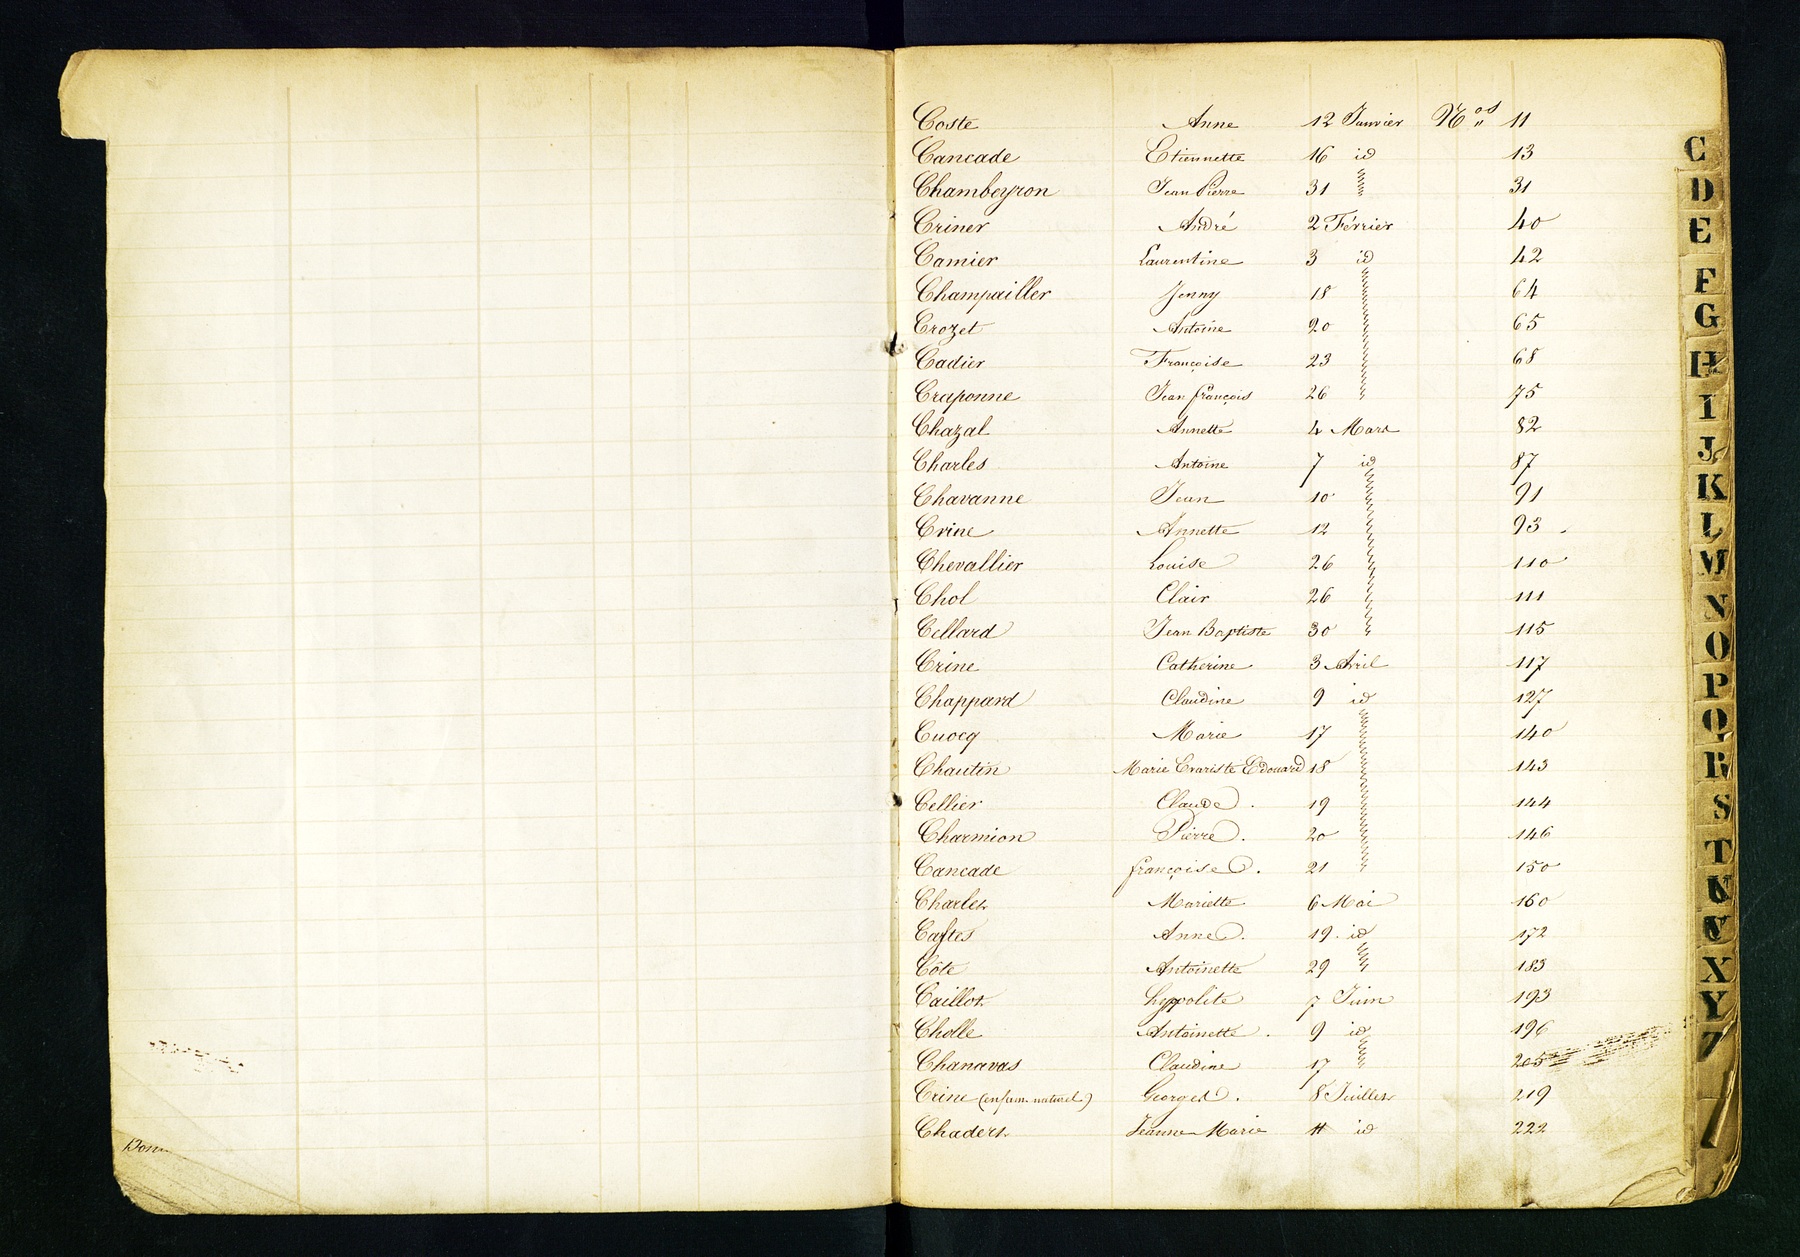 Coste Anne 12 Janvier Nos 11
Cancade Etiennette 16 id 13
Chambeyron Jean Pierre 31 31
Criner André 2 Février 40
Camier Laurentine 3 id 42
Champailler Jenny 18 64
Crozet Antoine 20 65
Cadier Françoise 23 68
Craponne Jean françois 26 75
Chazal Annette 4 Mars 82
Charles Antoine 7 id 87
Chavanne Jean 10 91
Crine Annette 12 93
Chevallier Louise 26 110
Chol Clair 26 111
Cellard Jean Baptiste 30 115
Crine Catherine 3 Avril 117
Chappard Claudine 9 id 127
Cuocq Marie 17 140
Chautin Marie Evariste Edouard 18 143
Cellier Claude 19 144
Charmion Pierre 20 146
Cancade françoise 21 150
Charles Mariette 6 Mai 160
Castes Anne 19 id 172
Côte Antoinette 29 183
Caillot hyppolite 7 Juin 193
Cholle Antoinette 9 id 196
Chanavas Claudine 17 205
Crine (enfam. naturel) Georges 8 Juillet 219
Chadert Jeanne Marie 11 id 222
C
D
E
F
G
H
I
J
K
L
M
N
O
P
Q
R
S
T
U
V
X
Y
Z